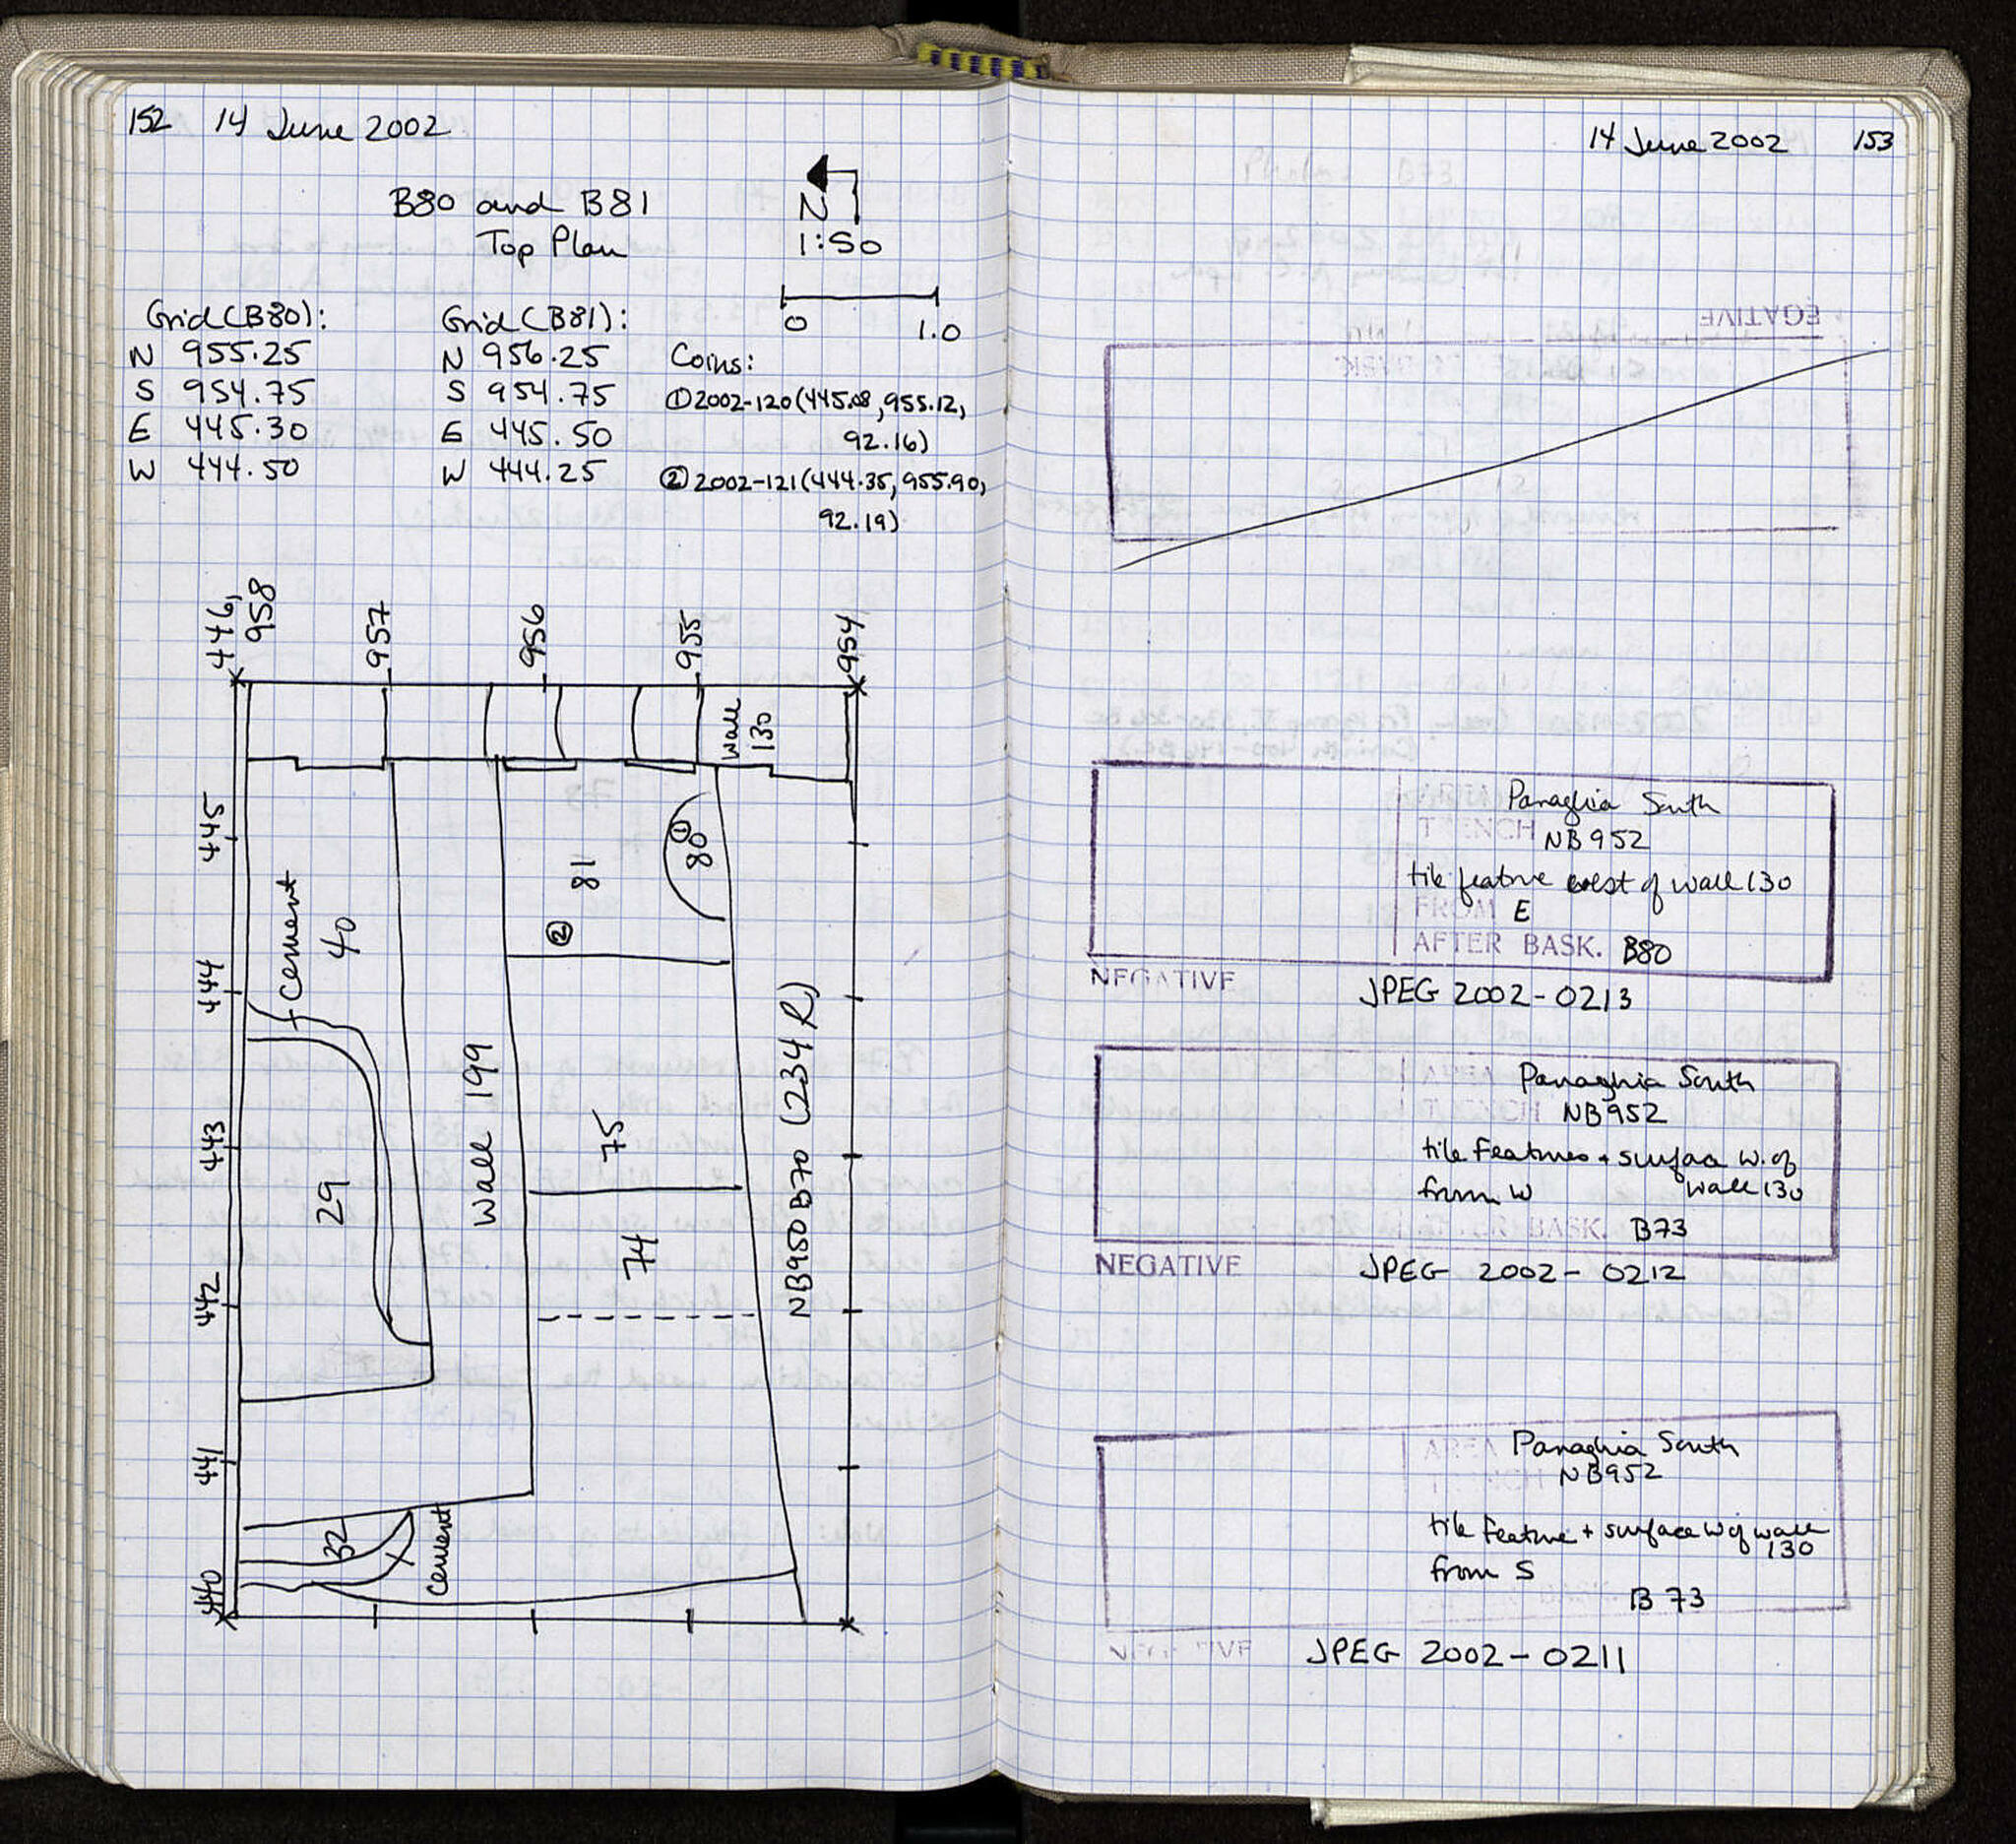 152 14 June 2002
B80 and B81
Top Plan
N
1:50
0 1.0
Grid (B80):
N 955.25
S 954.75
E 445.30
W 444.50
Grid (B81):
N 956.25
S 954.75
E 445.50
W 444.25
Coins:
① 2002-120 (445.08, 955.12,
92.16)
② 2002-121 (444.35, 955.90,
92.19)
446, 958
957
956
955
954
Wall
130
445
444
443
442
441
440
cement
40
81
①
80
②
Wall 199
29
75
74
NB950 B70 (234 R)
32
cement
14 June 2002 153
EGATIVE
Panaghia South
TRENCH NB952
tile feature west of wall 130
FROM E
AFTER BASK. B80
NEGATIVE
JPEG 2002-0213
AREA Panaghia South
TRENCH NB952
tile features + surface W. of
from W wall 130
BASK. B73
NEGATIVE
JPEG 2002-0212
AREA Panaghia South
NB952
tile feature + surface W of wall
130
from S
B 73
JPEG 2002-0211